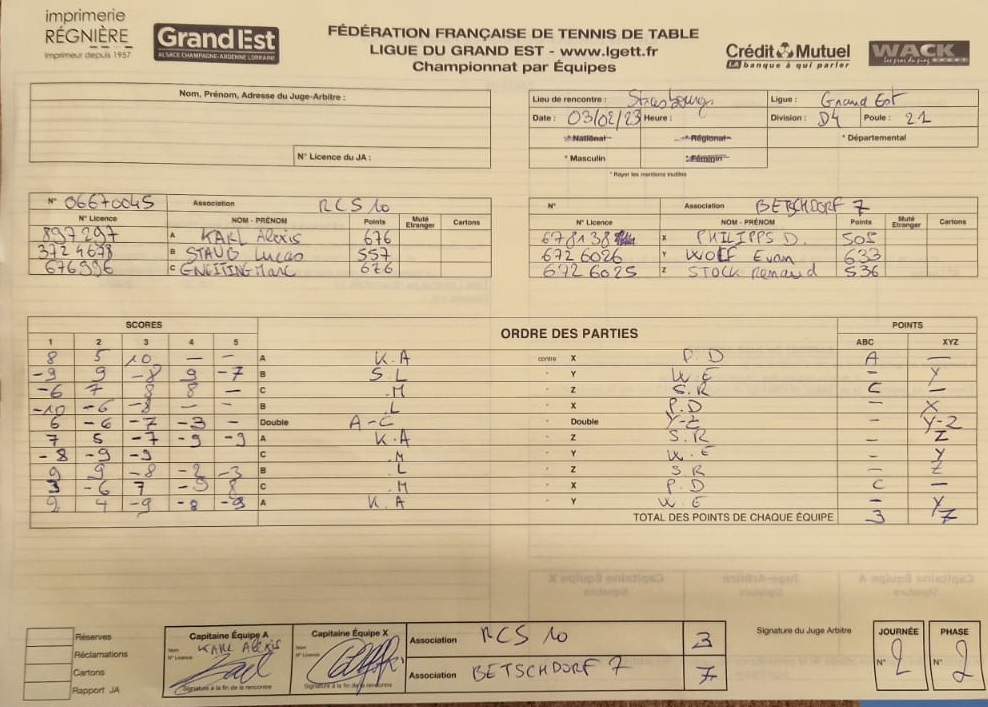 imprimerie
RÉGNIÈRE
Imprimeur depuis 1957
GrandEst
ALSACE CHAMPAGNE-ARDENNE LORRAINE
FÉDÉRATION FRANÇAISE DE TENNIS DE TABLE
LIGUE DU GRAND EST - www.lgett.fr
Championnat par Équipes
Crédit Mutuel
LA banque à qui parler
WACK
Nom, Prénom, Adresse du Juge-Arbitre :
N° Licence du JA :
Lieu de rencontre : Strasbourg Ligue : Grand Est
Date : 03/02/23 Heure : Division : D4 Poule : 21
* National * Régional * Départemental
* Masculin * Féminin
* Rayer les mentions inutiles
N° 06670045 Association RCS 10
N° Licence NOM - PRÉNOM Points Muté Etranger Cartons
897297 A KARL Alexis 676
3724678 B STAUB Lucas 557
676996 C GNEITING Marc 676
N° Association BETSCHDORF 7
N° Licence NOM - PRÉNOM Points Muté Etranger Cartons
678138 X PHILIPPS D. 505
6726026 Y WOLF Evan 633
6726025 Z STOCK Renaud 536
SCORES ORDRE DES PARTIES POINTS
1 2 3 4 5 ABC XYZ
8 5 10 — — A K.A contre X P.D A —
-9 9 -8 9 -7 B S L " Y W.E — Y
-6 7 8 8 — C .M " Z S.R C —
-10 -6 -8 — — B .L " X P.D — X
6 -6 -7 -3 — Double A-C " Double Y-Z — Y-Z
7 5 -7 -9 -9 A K.A " Z S.R — Z
-8 -9 -9 C .M " Y W.E — Y
9 9 -8 -2 -3 B .L " Z S R — Z
3 -6 7 -9 8 C .M " X P.D C —
2 4 -9 -8 -9 A K.A " Y W.E — Y
TOTAL DES POINTS DE CHAQUE ÉQUIPE 3 7
Réserves
Réclamations
Cartons
Rapport JA
Capitaine Équipe A
Nom KARL Alexis
N° Licence
Signature à la fin de la rencontre
Capitaine Équipe X
Nom
N° Licence
Signature à la fin de la rencontre
Association RCS 10 3
Association BETSCHDORF 7 7
Signature du Juge Arbitre
JOURNÉE
N° 2
PHASE
N° 2